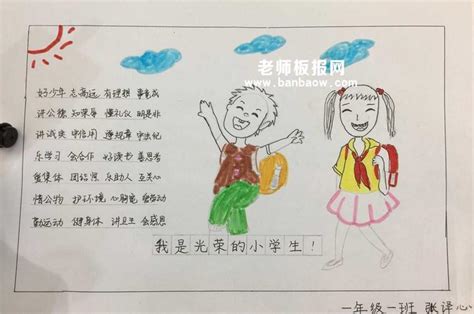 老师板报网
www.banbaow.com
好少年 志高远 有理想 事竟成
讲公德 知荣辱 懂礼仪 明是非
讲诚实 守信用 遵规章 守法纪
乐学习 会合作 好读书 善思考
爱集体 团结紧 乐助人 互关心
惜公物 护环境 心胸宽
勤运动 健身体 讲卫生 会感恩
我是光荣的小学生！
一年级一班 张译心